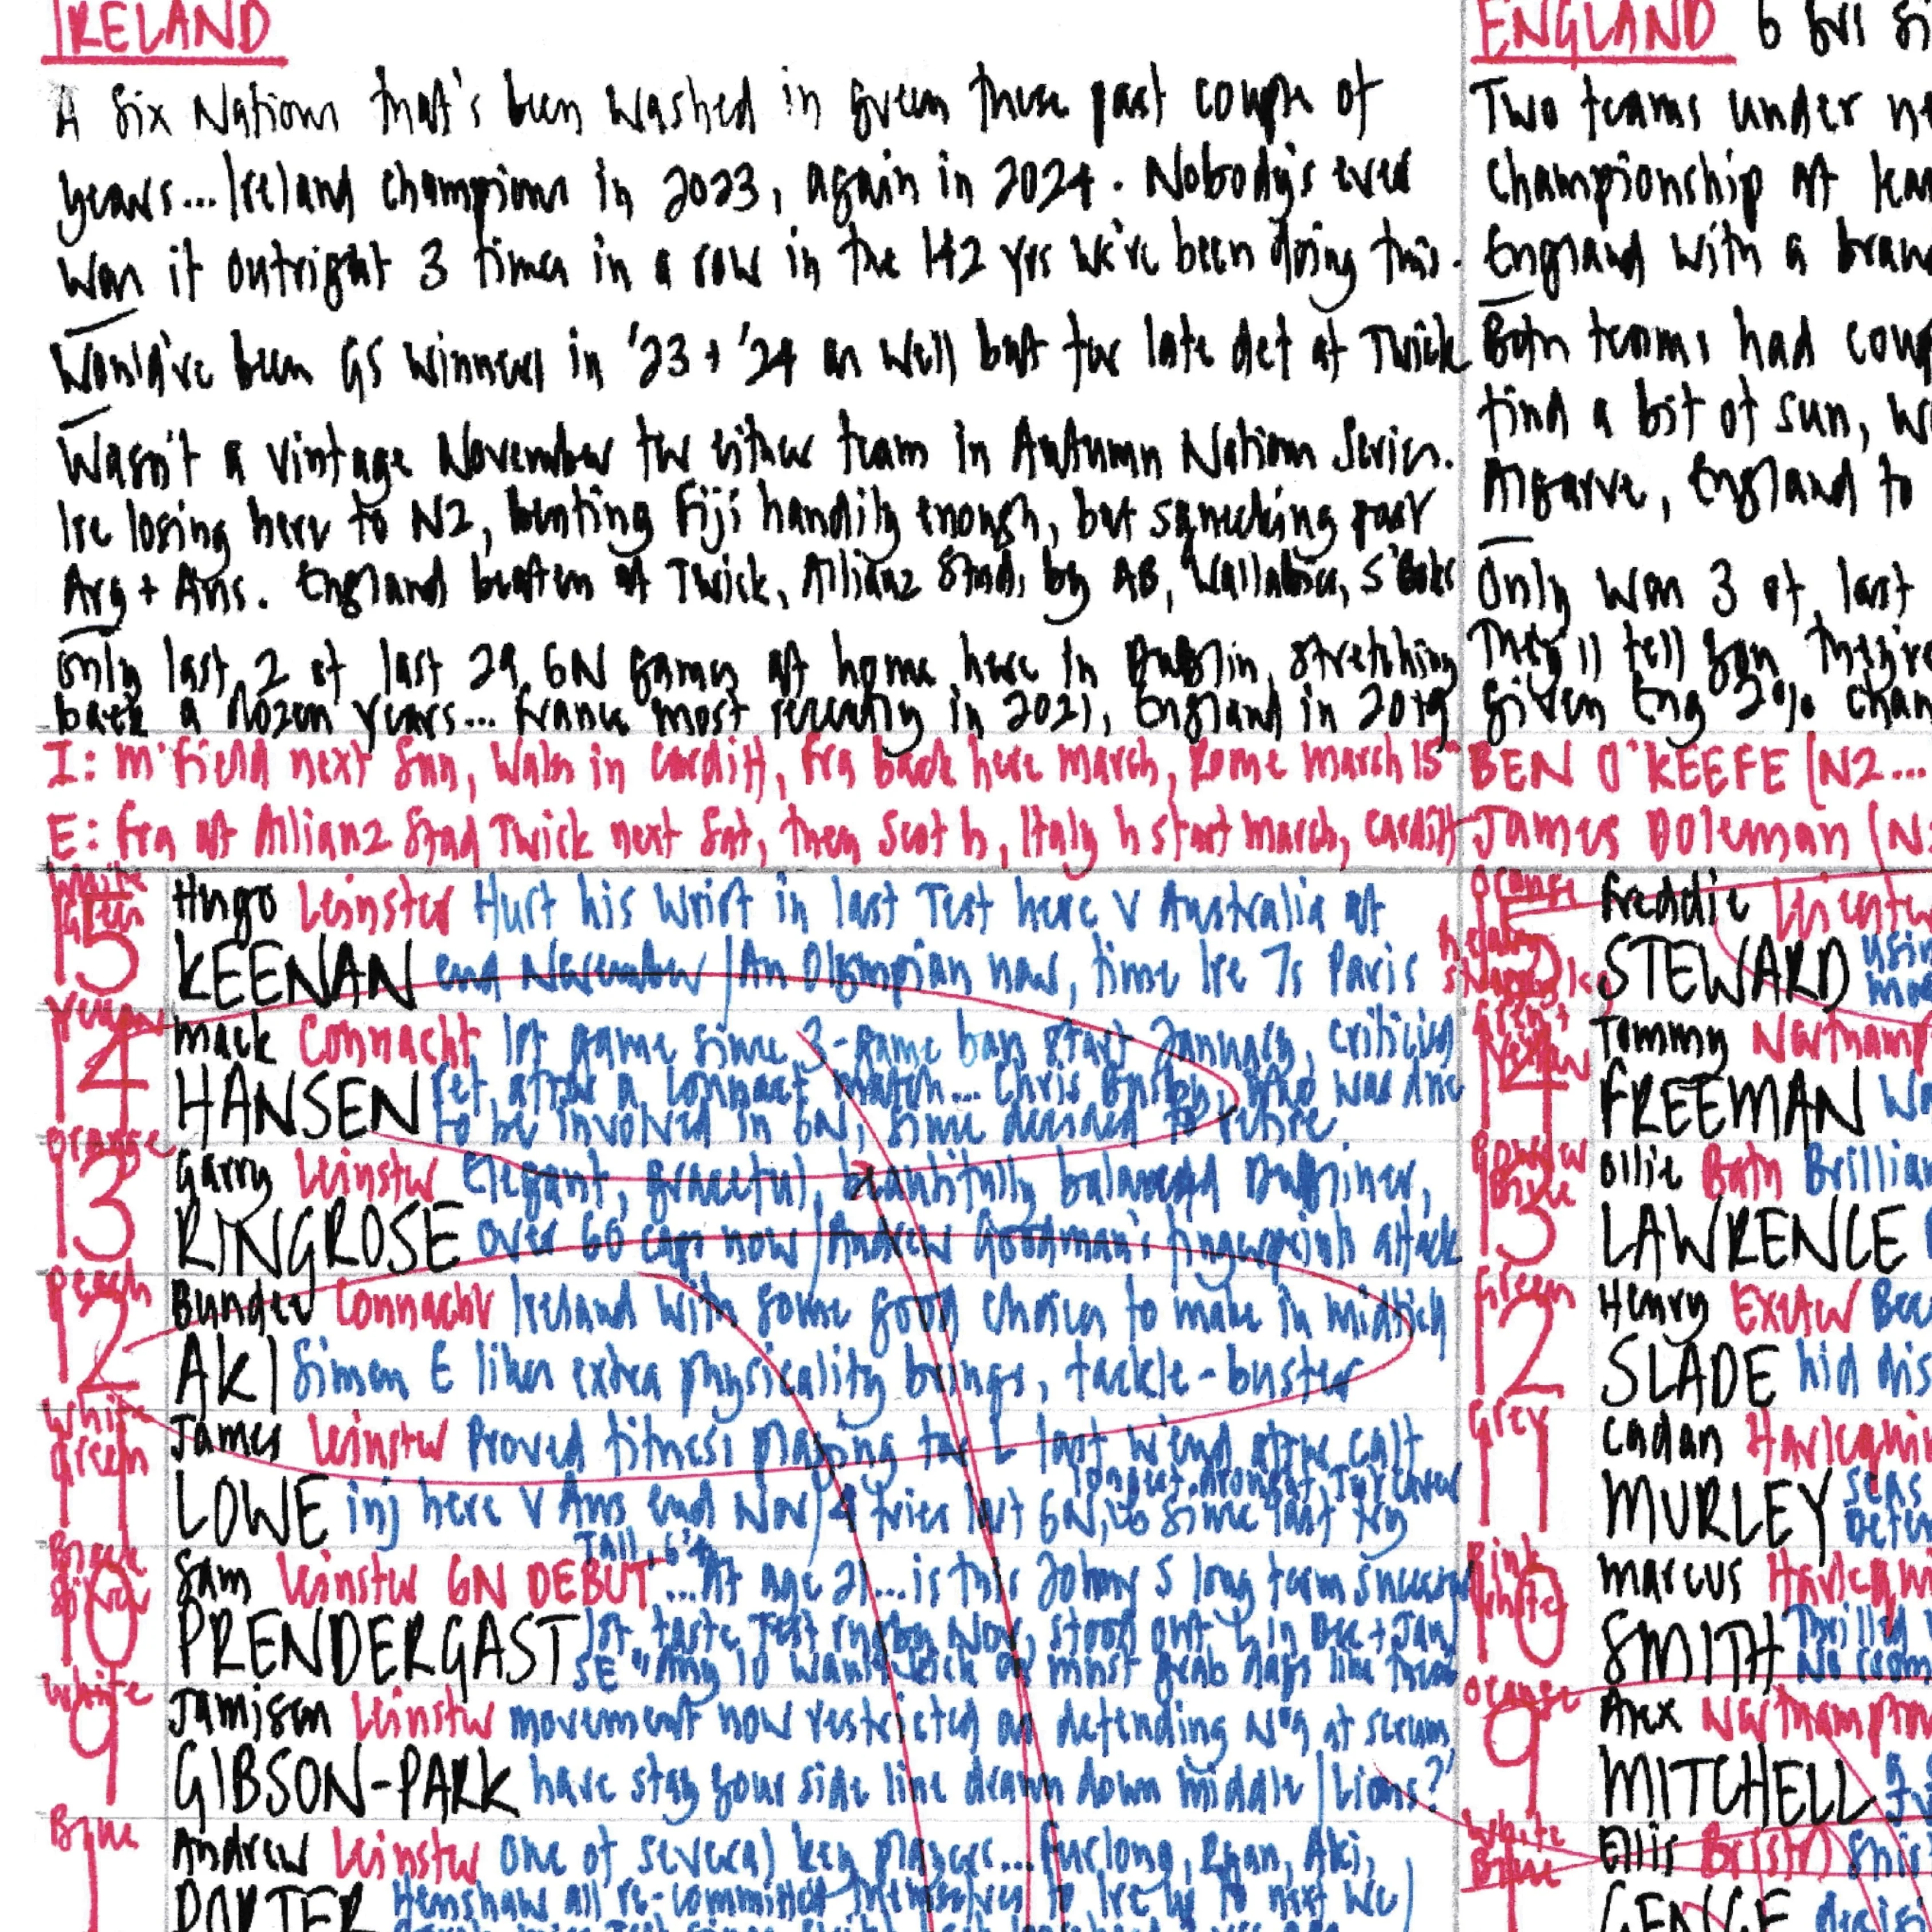 IRELAND
A Six Nations that's been washed in green these past couple of
years... Ireland champions in 2023, again in 2024. Nobody's ever
won it outright 3 times in a row in the 142 yrs we've been doing this.
Would've been GS winners in '23 + '24 as well but for late def at Twick
Wasn't a vintage November for either team in Autumn Nations Series.
Ire losing here to NZ, beating Fiji handily enough, but squeaking past
Arg + Aus. England beaten at Twick, Allianz Stad, by AB, Wallabies, S'Boks
Only last 2 of last 29 6N games at home here in Dublin, stretching
back a dozen years... France most recently in 2021, England in 2019
I: M'field next Sun, Wales in Cardiff, Fra back here march, Rome march 15
E: Fra at Allianz Stad Twick next Sat, then Scot h, Italy h start march, Cardiff
White Green
15 Hugo Leinster Hurt his wrist in last Test here v Australia at
KEENAN end November / An Olympian now, time Ire 7s Paris
14 Mack Connacht 1st game since 3-game ban start January, criticising
HANSEN ref after a Connact match... Chris Busby, who was due
to be involved in 6N, since decided to retire
Orange
13 Garry Leinster Elegant, graceful, beautifully balanced Dubliner,
RINGROSE over 60 caps now / Andrew Goodman's fingerprints attack
Peach
12 Bundee Connacht Ireland with some good choices to make in midfield
AKI Simon E likes extra physicality brings, tackle-buster
White Green
11 James Leinster Proved fitness playing for L last w'end after calf
LOWE inj here v Aus end Nov / 4 tries last 6N, since last try
longest drought
Black
10 Sam Leinster 6N DEBUT ...At age 21... is this Johnny S long term successor
Tall, 6'4
PRENDERGAST 1st taste Test rugby Nov, stood out L in Dec + Jan
SE "Any 10 wants must grab days like these
White
9 Jamison Leinster movement now restricted as defending No9 at scrum
GIBSON-PARK have stay your side line drawn down middle / Lions?
Blue
1 Andrew Leinster one of several key players... Furlong, Ryan, Aki,
PORTER Henshaw all re-committed themselves to Ire up to next WC
ENGLAND 6
Two teams under
Championship at
England with a
Both teams had
find a bit of sun,
Algarve, England to
Only won 3 of last
They'll tell you they're
given Eng 2% chan
BEN O'KEEFE (NZ...
James Doleman (N
Orange
15 Freddie
STEWARD
14 Tommy Northamp
FREEMAN
13 Ollie Bath Brillian
LAWRENCE
Green
12 Henry Exeter
SLADE hid dis
Grey
11 Cadan Harlequin
MURLEY
Pink White
10 Marcus
SMITH Thrilled
No room
Orange
9 Alex Northampton
MITCHELL
White Blue
1 Ellis Bristol
GENGE